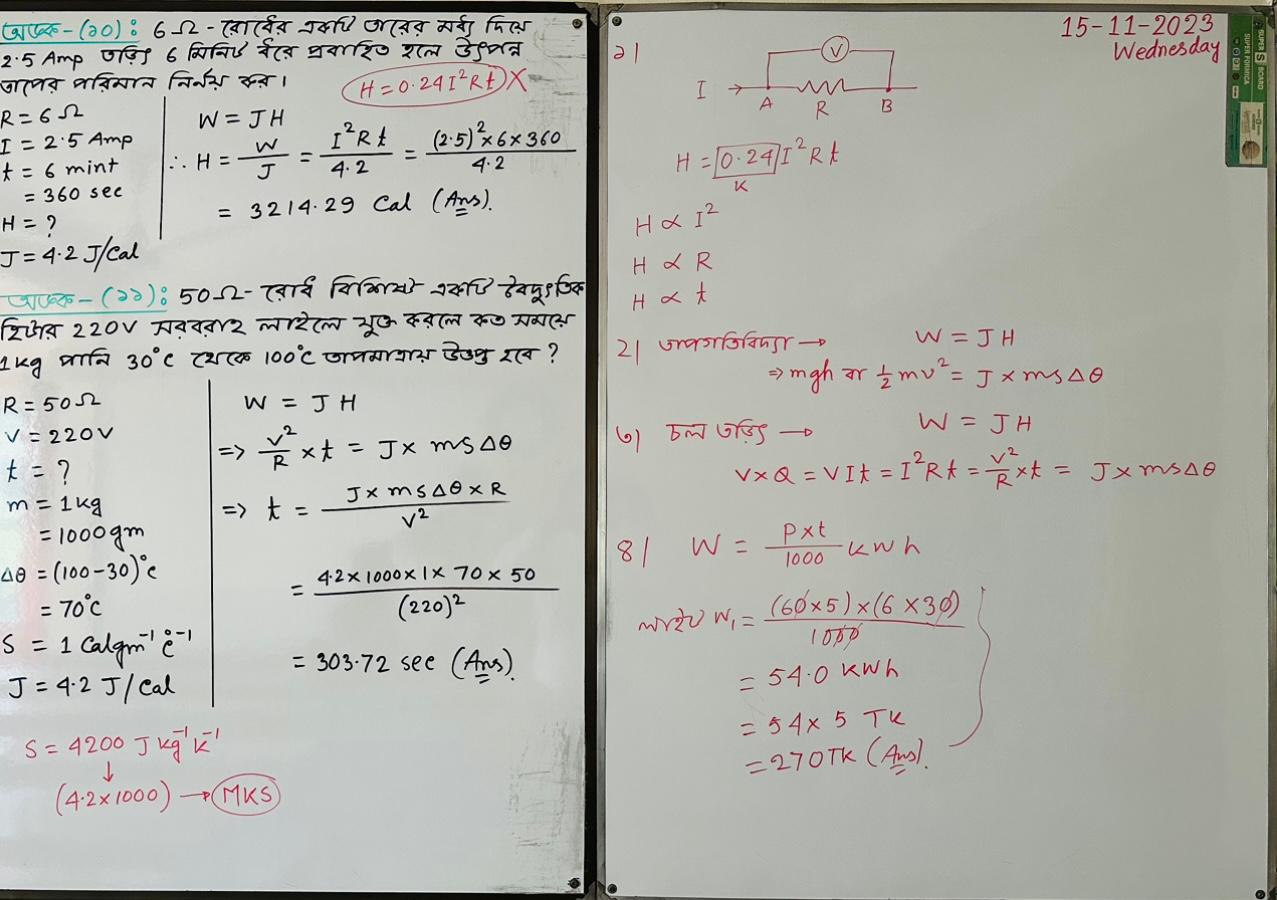 অংক-(১০): 6Ω-রোধের একটি তারের মধ্য দিয়ে
2.5 Amp তড়িৎ 6 মিনিট ধরে প্রবাহিত হলে উৎপন্ন
তাপের পরিমান নির্নয় কর।
H = 0.24 I²Rt X
R = 6Ω
I = 2.5 Amp
t = 6 mint
= 360 sec
H = ?
J = 4.2 J/Cal
W = JH
∴ H = W/J = I²Rt/4.2 = (2.5)²×6×360/4.2
= 3214.29 Cal (Ans).
অংক-(১১): 50Ω-রোধ বিশিষ্ট একটি বৈদ্যুতিক
হিটার 220V সরবরাহ লাইনে যুক্ত করলে কত সময়ে
1kg পানি 30°c থেকে 100°c তাপমাত্রায় উত্তপ্ত হবে?
R = 50Ω
V = 220V
t = ?
m = 1kg
= 1000gm
Δθ = (100-30)°c
= 70°c
S = 1 Calgm⁻¹°c⁻¹
J = 4.2 J/Cal
W = JH
=> V²/R × t = J× msΔθ
=> t = J×msΔθ×R/V²
= 4.2×1000×1×70×50/(220)²
= 303.72 sec (Ans).
S = 4200 J kg⁻¹K⁻¹
↓
(4.2×1000) → MKS
15-11-2023
Wednesday
SUPER S BOARD
SUPER FORMICA
১|
V
I → A R B
H = 0.24 I²Rt
K
H ∝ I²
H ∝ R
H ∝ t
২| তাপগতিবিদ্যা → W = JH
⇒ mgh বা ½mv² = J×msΔθ
৩| চল তড়িৎ → W = JH
V×Q = VIt = I²Rt = V²/R×t = J×msΔθ
৪| W = P×t/1000 kwh
লাইট W₁ = (60×5)×(6×30)/1000
= 54.0 kwh
= 54×5 Tk
= 270Tk (Ans).